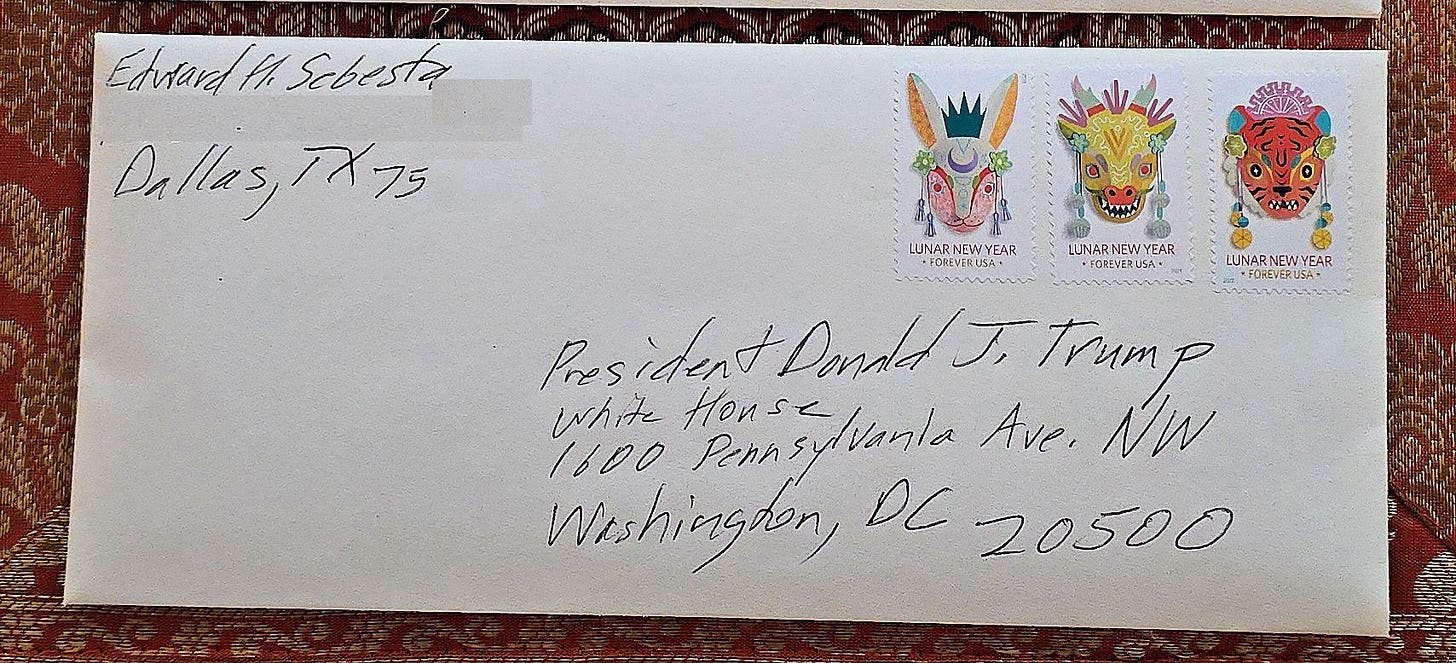 Edward H. Sebesta
Dallas, TX 75
LUNAR NEW YEAR
• FOREVER USA •
LUNAR NEW YEAR
• FOREVER USA •
LUNAR NEW YEAR
• FOREVER USA •
President Donald J. Trump
White House
1600 Pennsylvania Ave. NW
Washington, DC 20500